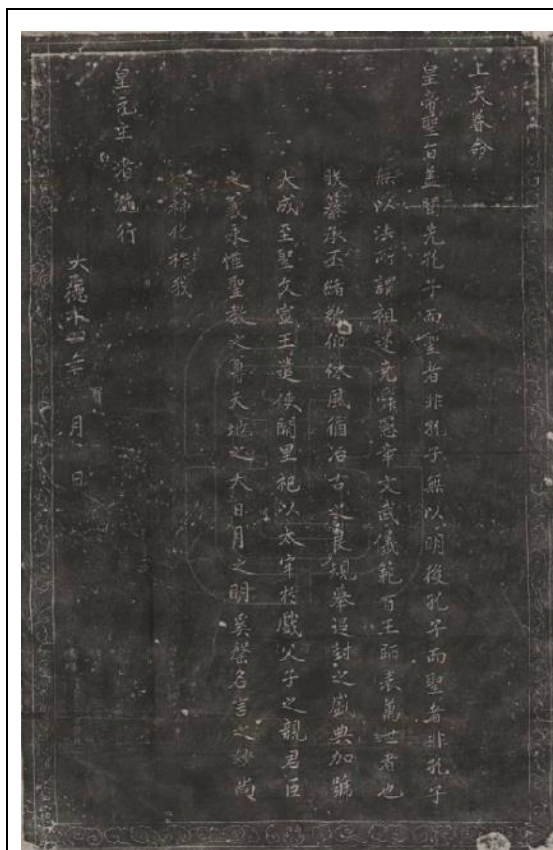 上天眷命
皇帝聖旨蓋聞先孔子而聖者非孔子無以明後孔子而聖者非孔子
無以法所謂祖述堯舜憲章文武儀範百王師表萬世者也
朕纂承丕緒敬仰休風循治古之良規舉追封之盛典加號
大成至聖文宣王遣使闕里祀以太牢於戲父子之親君臣
之義永惟聖教之尊天地之大日月之明奚罄名言之妙尚
資神化祚我
皇元主者施行
大德年 月 日